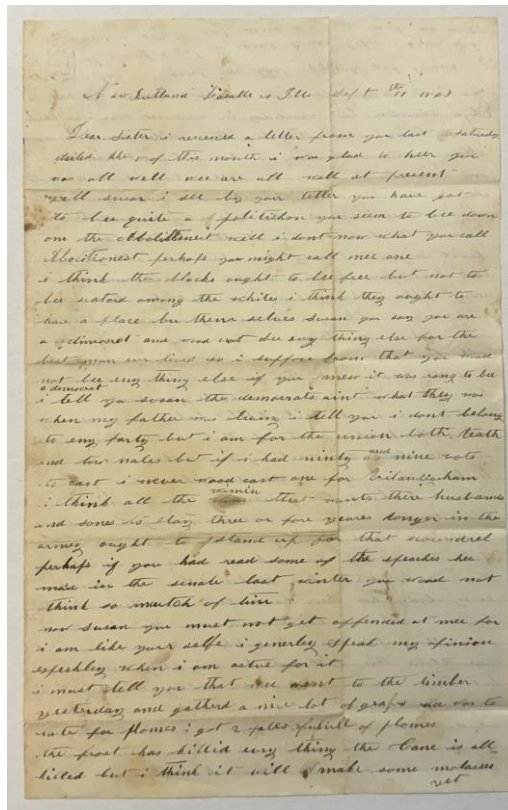 New Rutland Lasalle co Ills Sept th 11 1863
Dear Sister i received a letter from you last saturday
dated the of this month i was glad to heer you
was all well wee are all well at present
well susan i see by your letter you have got
to bee quite a politichon you seem to bee down
one the Abolitionest well i dont now what you call
Aboitionest perhaps you might call mee one
i think the blacks ought to bee free but not to
bee scatord among the whites i think they ought to
have a place bee them selves Susan you say you are
a dimocrat and wood not bee eny thing else for the
best man ever lived so i suppose from that you wood
not bee eny thing else if you knew it was rong to bee
a democrat
i tell ya susan the democrats aint what they was
when my father was living i tell you i dont belong
to eny party but i am for the union both teath
and tow nales but if i had ninty and nine vots
to cast i never wood cast one for Vilandigham
i think all the wimin that wants there husbands
and sones to stay three or fore yeares longer in the
armey ought to stand up for that scoundrel
perhaps if you had read some of the speaches hee
made in the senate last winter you wood not
think so mutch of him
now Susan you must not get offended at mee for
i am like your selfe i generley speak my opinion
espeshley when i am astue for it
i must tell you that wee went to the timber
yesterday and gatherd a nice lot of grapes was to
late for plomes i got 2 palls full of plomes
the frost has killid evry thing the Cane is all
killed but i think it will make some molasses
yet